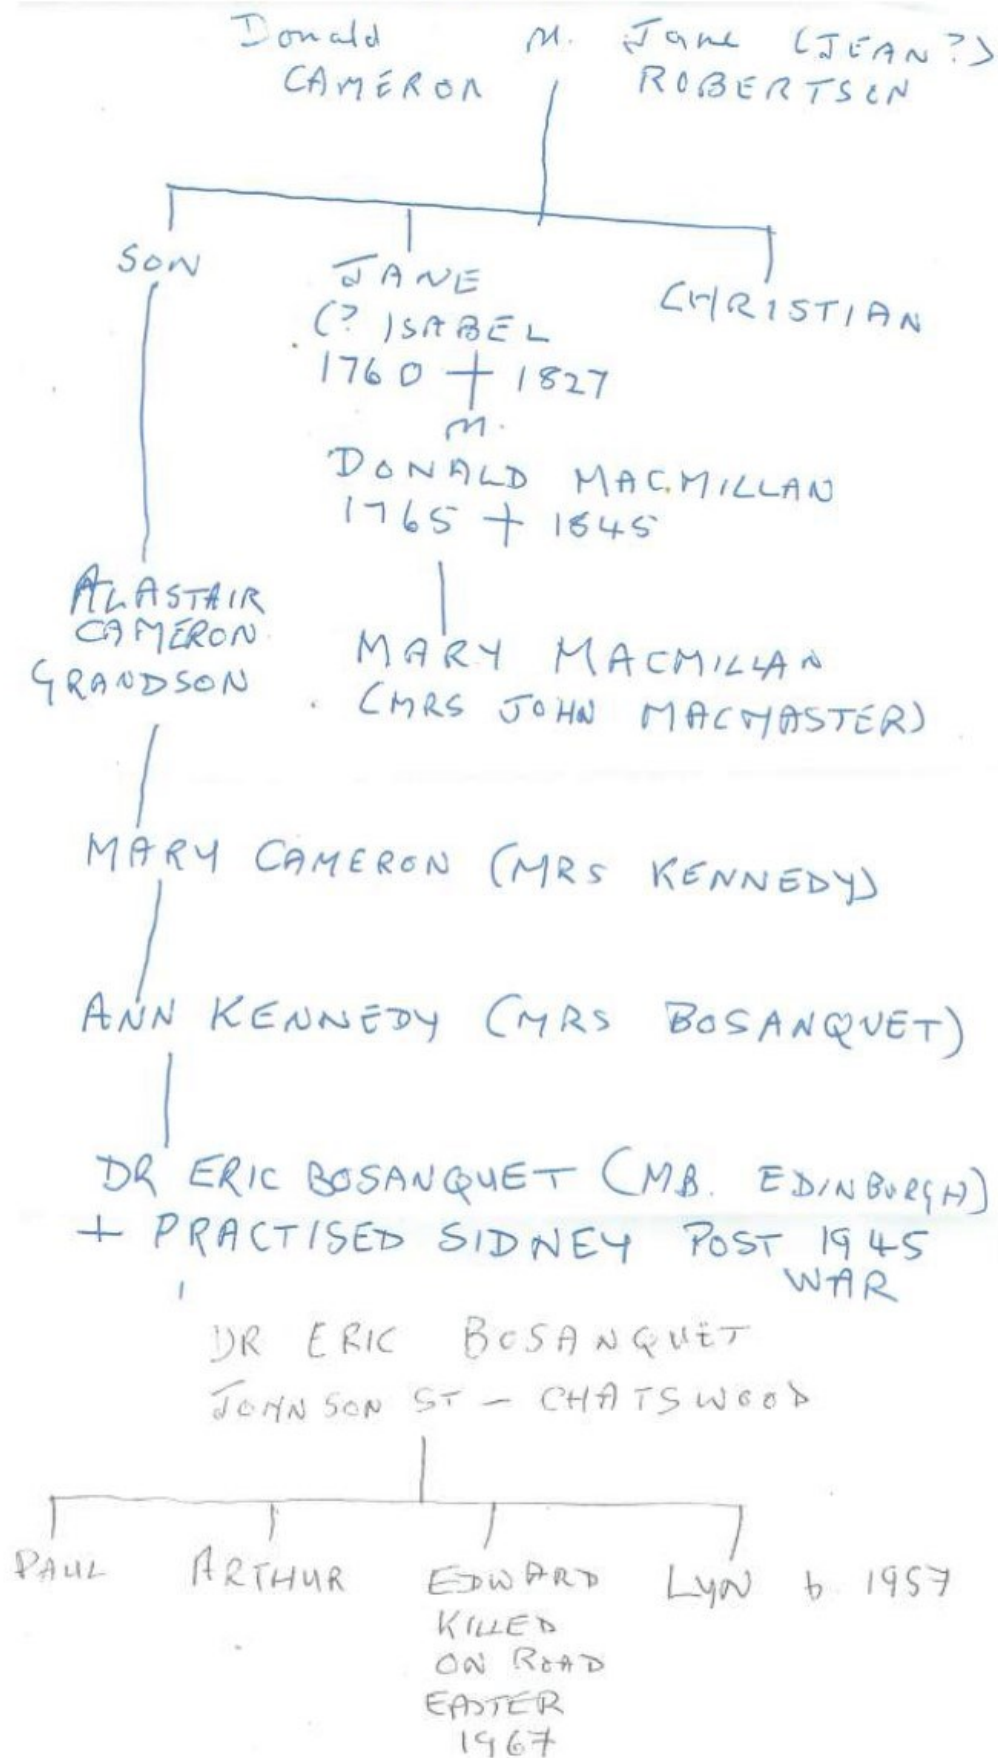 Donald M. Jane (JEAN?)
CAMERON ROBERTSON
SON JANE CHRISTIAN
(? ISABEL
1760 + 1827
M.
DONALD MACMILLAN
1765 + 1845
ALASTAIR
CAMERON
GRANDSON
MARY MACMILLAN
(MRS JOHN MACMASTER)
MARY CAMERON (MRS KENNEDY)
ANN KENNEDY (MRS BOSANQUET)
DR ERIC BOSANQUET (MB. EDINBURGH)
+ PRACTISED SIDNEY POST 1945
WAR
DR ERIC BOSANQUET
JOHNSON ST - CHATSWOOD
PAUL ARTHUR EDWARD LYN b 1957
KILLED
ON ROAD
EASTER
1967